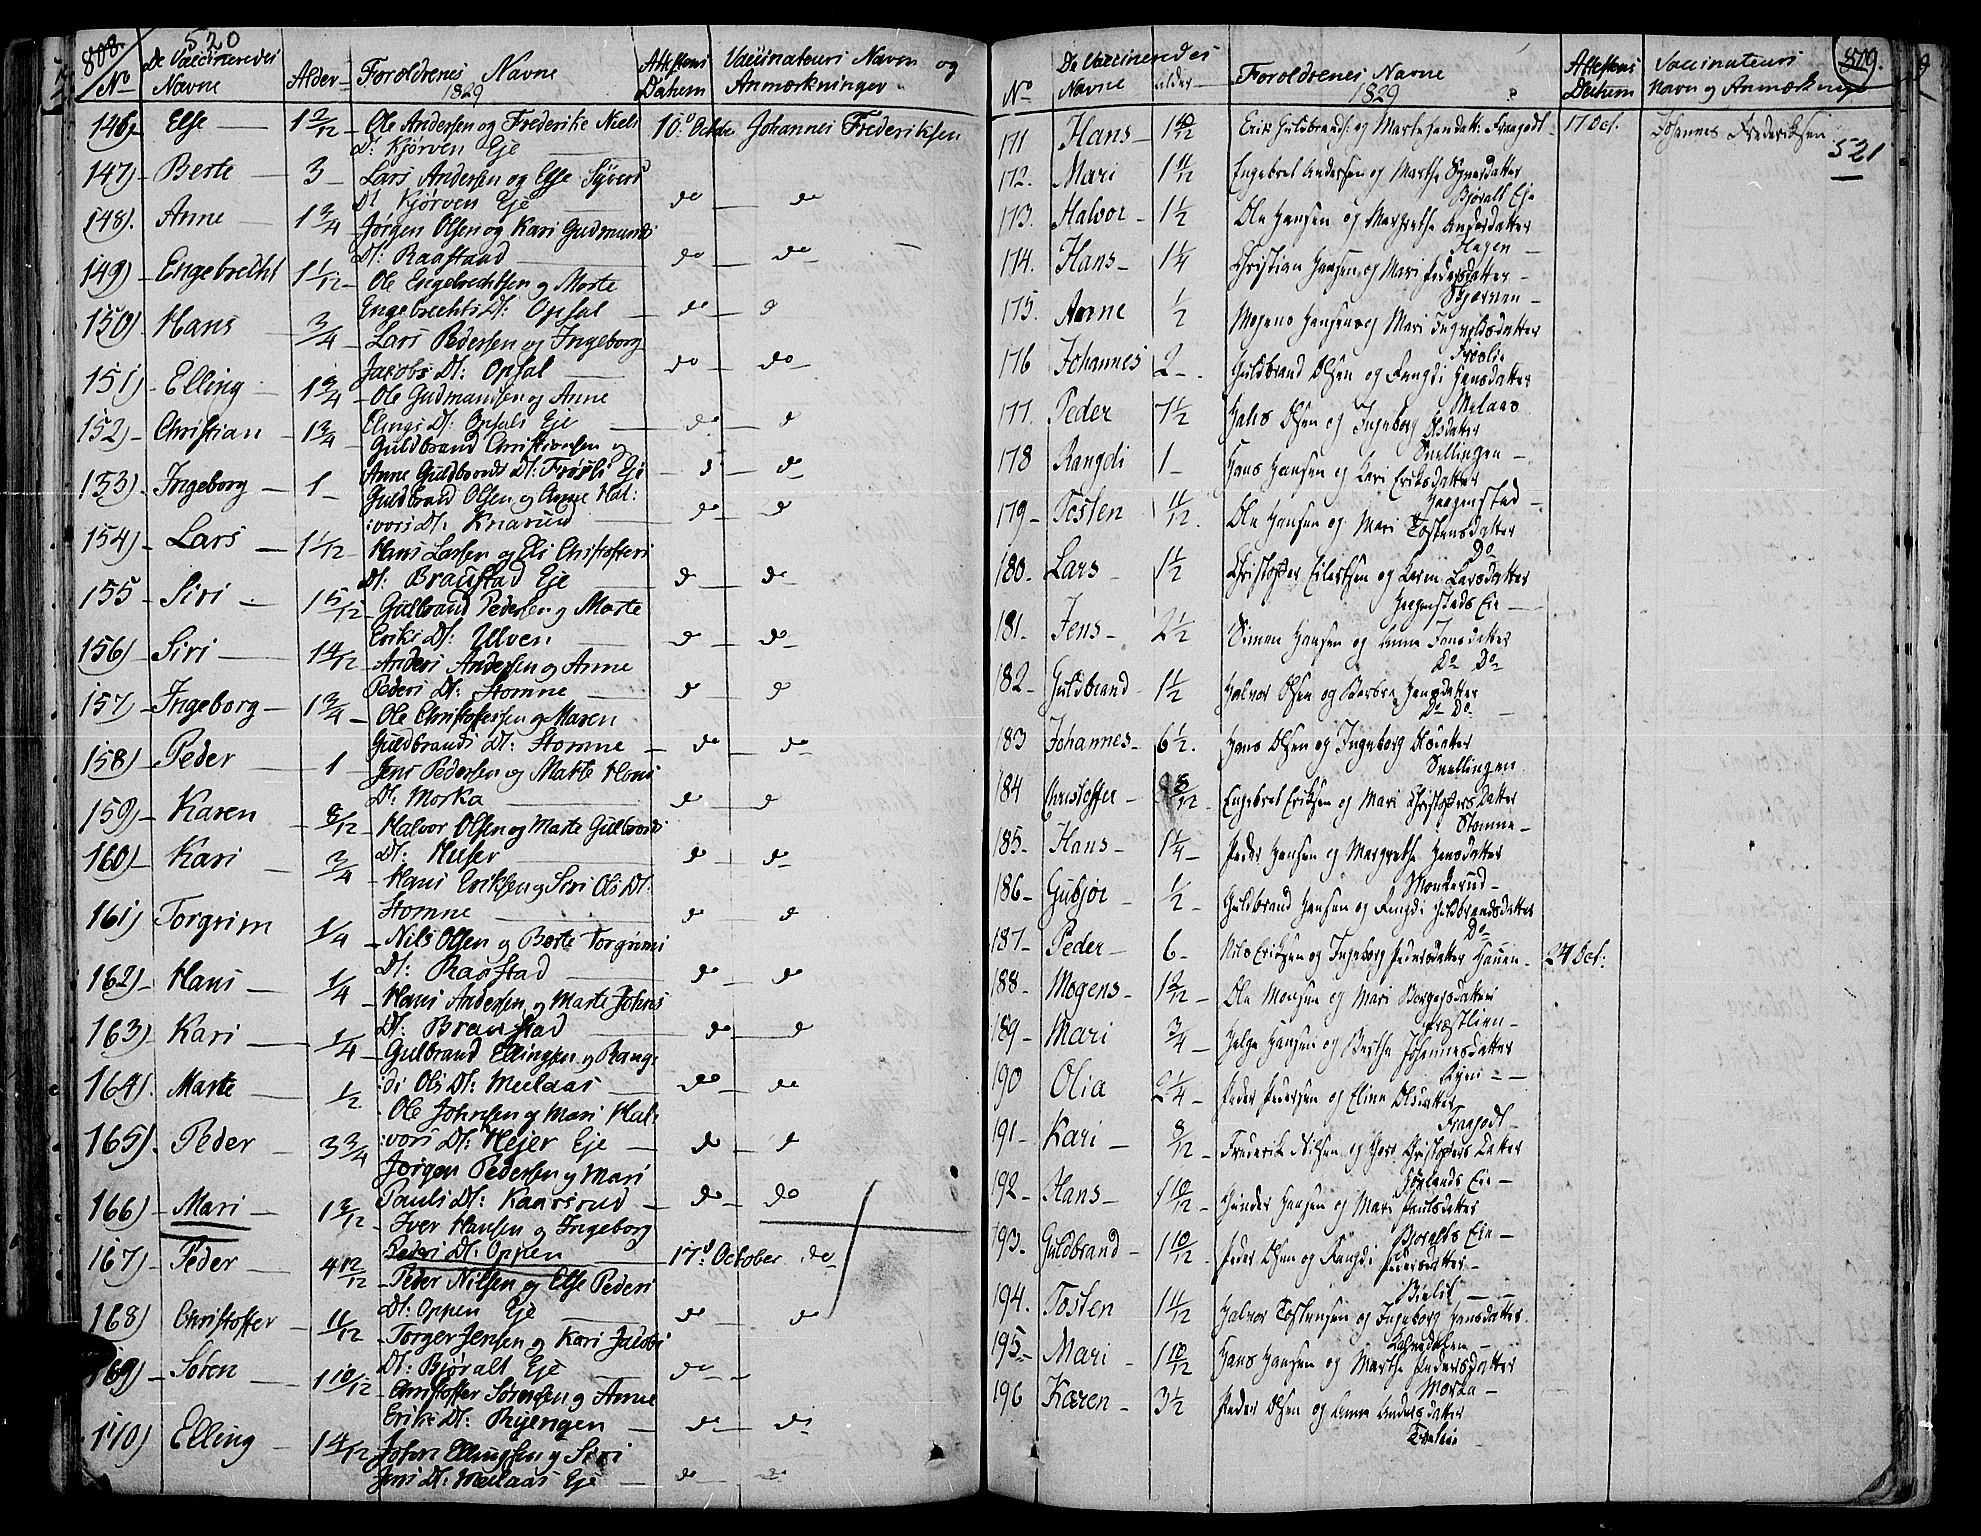 808. 520
No De Vaccineredes Navne Alder Forældrenes Navne 1829 Attestens Datum Vaccinateurs Navn og Anmærkninger
146) Else 1 2/12 Ole Andersen og Frederike Niels 10de Octbr Johannes Frederiksen
Dt: Kjørven Eje
147) Berte 3 Lars Andersen og Else Syvers
Dt Kjørven Eje do do
148). Anne 1 3/4 Jørgen Olsen og Kari Gudmunds
Dt: Raastaad do do
149) Engebrecht 1 1/12 Ole Engebrechtsen og Marte
Engebrechts Dt: Opsal do d
150) Hans 3/4 Lars Pedersen og Ingeborg
Jacobs Dt: Opsal do do
151) Elling 1 3/4 Ole Gudmandsen og Anne
Ellings Dt: Opsals Eje do d
152) Christian 1 3/4 Guldbrand Christiansen og
Anne Guldbrands Dt: Frøsli Eje d do
153) Ingeborg 1 Guldbrand Olsen og Anne Hal:
:vors Dt: Knarud do do
154) Lars 1 1/12 Hans Larsen og Eli Christoffers
Dt: Braastad Eje d do
155 Siri 1 5/12 Gulbrand Pedersen og Marte
Eriks Dt: Ulven do do
156) Siri 1 4/12 Anders Andersen og Anne
Peders Dt: Stomne d d
157) Ingeborg 1 3/4 Ole Christoffersen og Maren
Guldbrands Dt: Stomne do do
158) Peder 1 Jens Pedersen og Marte Hans
Dt: Morka do d
159) Karen 8/12 Halvor Olsen og Marte Gulbrands
Dt: Huser do do
160) Kari 3/4 Hans Eriksen og Siri Ols Dt:
Stomne do d
161) Torgrim 1/4 Nils Olsen og Berte Torgrims
Dt: Raastad do do
162) Hans 1/4 Hans Andersen og Marte Johns
Dt: Braastad do d
163) Kari 1/4 Gulbrand Ellingsen og Rang:
:di Ols Dt: Meelaas do do
164). Marte 1/2 Ole Johnsen og Mari Hal:
:vors Dt: Hejer Eje do d
165) Peder 3 3/4 Jørgen Pedersen og Mari
Pauls Dt: Kaarsrud do do
166) Mari 1 3/12 Iver Hansen og Ingeborg
Peders Dt: Oppen 17d: October do
167) Peder 4 Peder Nilsen og Else Peders
Dt: Oppen Eje do do
168) Christoffer 11/12 Torger Jensen og Kari Jacobs
Dt: Bjøralt Eje do
169) Søren 1 10/12 Christoffer Sørensen og Anne
Eriks Dt: Ryengen do do
170) Elling 1 4/12 Johan Ellingsen og Siri
Jens Dt: Meelaas Eje do do
809.
No De Vaccineredes Navne Alder Forældrenes Navne 1829 Attestens Datum Vaccinateurs Navn og Anmærkninger
171 Hans 1 10/12 Erik Guldbrands: og Marte Hansdatt: Fragodt 17 Oct. Johannes Frederiksen
521
172. Mari 1 11/12 Engebret Andersen og Marthe datter
Bjøralt Eje
173. Halvor 1 1/2 Ole Hansen og Margrethe Andersdatter
Hagen
174. Hans 1 1/4 Christian Hansen og Mari Pedersdatter
175. Anne 1/2 Mogens Hansen og Mari Ingvoldsdatter
Frøslie
176 Johannes 2 Guldbrand Olsen og Rangdi Hansdatter
Melaas
177. Peder 7 1/2 Hans Olsen og Ingeborg Olsdatter
Snellingen
178 Rangdi 1 Hans Hansen og Kari Eriksdatter
179 Tosten 11/12. Ole Hansen og Mari Tostensdatter
Do
180. Lars 1 1/2 Christopher Eilertsen og Karen Larsdatter
181. Jens 2 1/2 Simen Hansen og Anne Jansdatter
Do Do
182 Guldbrand 1 1/2 Halvor Olsen og Barbra Hansdatter
Do Do.
183 Johannes 6 1/2. Hans Olsen og Ingeborg Olsdatter
Snellingen
184 Christoffer 8/12 Engebret Eriksen og Mari Christophers Datter
Stomne
185. Hans 1 1/4 Peder Hansen og Margrethe Hansdatter
Monkerud
186 Gubjør 1/2 Guldbrand Hansen og Rangdi Guldbrandsdatter
Do
187 Peder 6 Nils Eriksen og Ingeborg Pedersdatter Hauen 24 Oct:
188 Mogens 1 2/12 Ole Monsen og Mari Borgersdatter
Præstlien
189 Mari 3/4 Helge Hansen og Berthe Johannesdatter
190 Olia 2 1/4 Peder Pedersen og Eline Olsdatter
Fragodt
191 Kari 8/12 Frederik Nilsen og Christophers Datter
Eie
192 Hans 1 10/12 Gunder Hansen og Mari Paulsdatter
Bjøralts Eie
193. Guldbrand 1 10/12 Peder Olsen og Rangdi Pedersdatter
194. Tosten 1 1/12 Halvor Tostensen og Ingeborg Hansdatter.
195. Mari 1 10/12 Hans Hansen og Marthe Pedersdatter
Morka
196 Karen 3 1/2 Peder Olsen og Anne Andersdatter